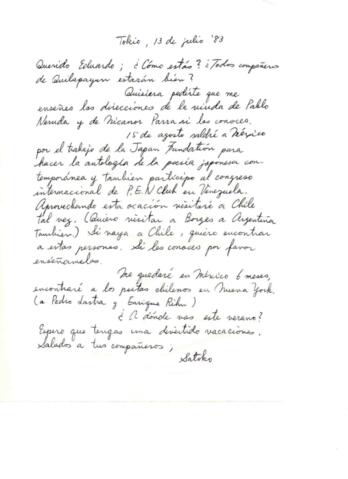 Tokio, 13 de julio '83
Querido Eduardo; ¿Cómo estás? ¿Todos compañeros
de Quilapayun estarán bien?
Quisiera pedirte que me
enseñes las direcciones de la viuda de Pablo
Neruda y de Nicanor Parra si las conoces.
15 de agosto saldré a México
por el trabajo de la Japan Fundation para
hacer la antología de la poesía japonesa con-
temporánea y tambien participo al congreso
internacional de P.E.N Club en Venezuela.
Aprovechando esta ocación visitaré a Chile
tal vez. (Quiero visitar a Borges a Argentina
tambien) Si vaya a Chile, quiero encontrar
a estas personas. Si les conoces por favor
enseñamelas.
Me quedaré en México 6 meses,
encontraré a los poetas chilenos en Nueva York.
(a Pedro Lastra y Enrique Lihn)
¿A dónde vas este verano?
Espero que tengas una divertido vacaciones.
Saludos a tus compañeros,
Satoko